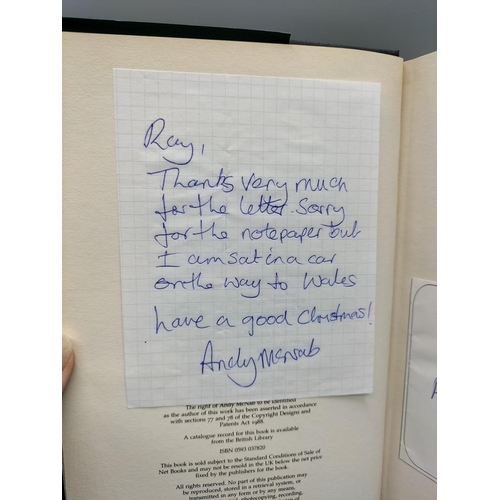 Ray,
Thanks very much
for the letter. Sorry
for the notepaper but
I am sat in a car
on the way to Wales
have a good Christmas!
Andy McNab
The right of Andy McNab to be identified
as the author of this work has been asserted in accordance
with sections 77 and 78 of the Copyright Designs and
Patents Act 1988.
A catalogue record for this book is available
from the British Library
ISBN 0593 037820
This book is sold subject to the Standard Conditions of Sale of
Net Books and may not be resold in the UK below the net price
fixed by the publishers for the book.
All rights reserved. No part of this publication may
be reproduced, stored in a retrieval system, or
transmitted in any form or by any means,